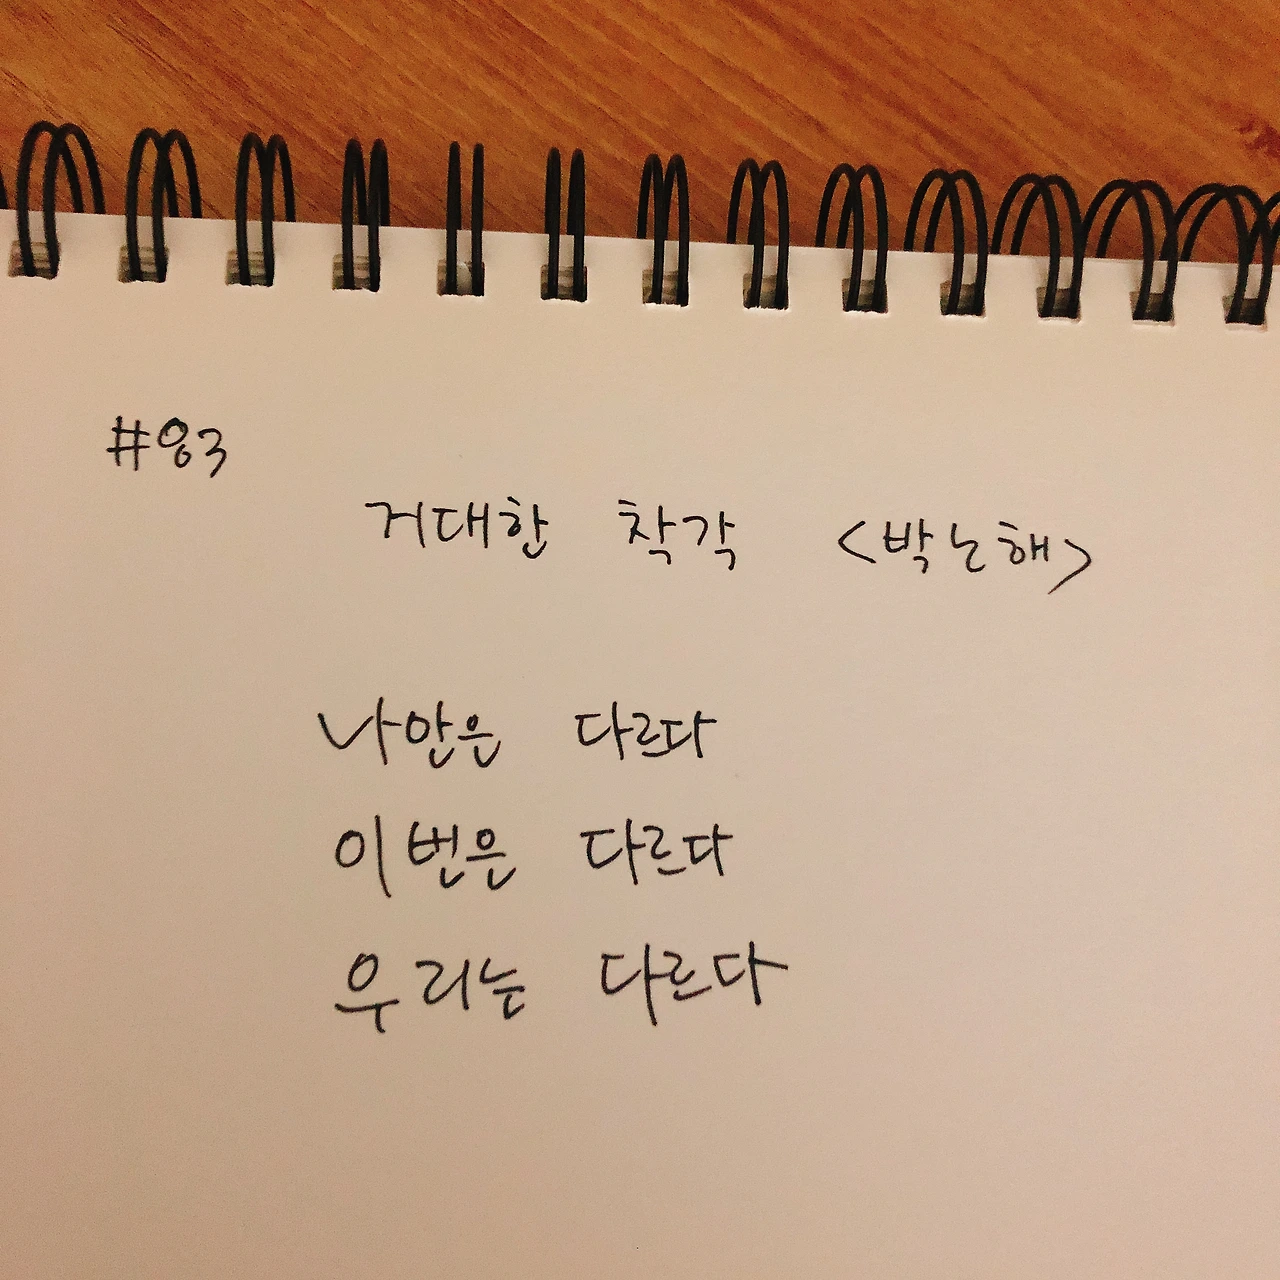 #83
거대한 착각 <박노해>
나만은 다르다
이번은 다르다
우리는 다르다